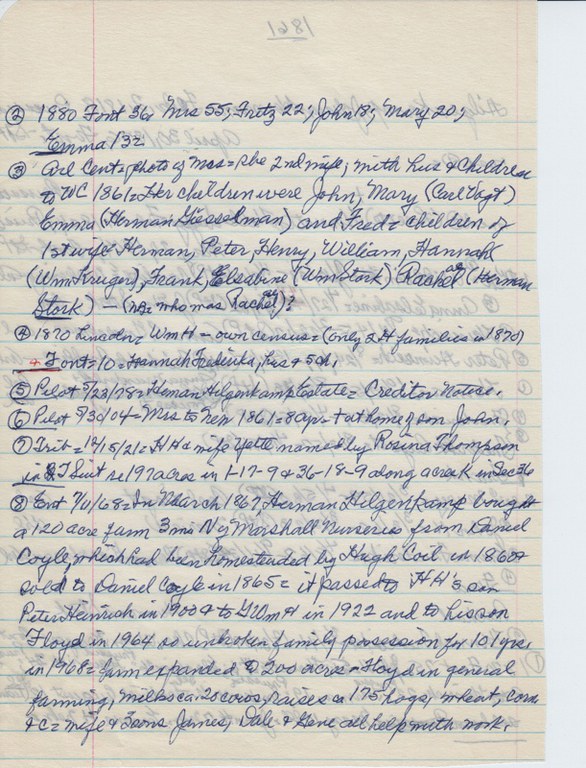 1861
② 1880 Font 36, Mrs 55; Fritz 22; John 18; Mary 20;
Emma 13 =
③ Arl Cent = photo of Mrs = she 2nd wife; with hus & children
to WC 1861 = Her children were John, Mary (Carl Vogt)
Emma (Herman Giesselman) and Fred = children of
1st wife = Herman, Peter, Henry, William, Hannah
(Wm Kruger), Frank, Elsabine (Wm Stork) Rachel (Herman
Stork) – (NB = who was Rachel)?
④ 1870 Lincoln = Wm H – own census = (only 2 H families in 1870)
+ Font = 10 = Hannah Frederika, hus & 5 ch,
⑤ Pilot 5/23/78 = Heman Hilgenkamp Estate = Creditor Notice.
⑥ Pilot 5/30/04 = Mrs to Neb 1861 = 84 yrs + at home of son John.
⑦ Trib = 12/15/21 = HH & wife Yetta named by Rosina Thompson
in QT Suit re 197 acres in 1-17-9 & 36-18-9 along acre K in Sec 36
⑧ Ent 7/1/68 = In March 1867 Herman Hilgenkamp bought
a 120 acre farm 3 mi N of Marshall Nurseries from Daniel
Coyle, which had been homesteaded by Hugh Coil in 1860 &
sold to Daniel Coyle in 1865 = it passed to HH's son
Peter Heinrich in 1900 & to G Wm H in 1922 and to his son
Floyd in 1964 so unbroken family possession for 101 yrs.
in 1968 = farm expanded to 200 acres = Floyd in general
farming, milks ca 20 cows, raises ca 175 hogs, wheat, corn
&c = wife & 3 sons James, Dale & Gene all help with work.